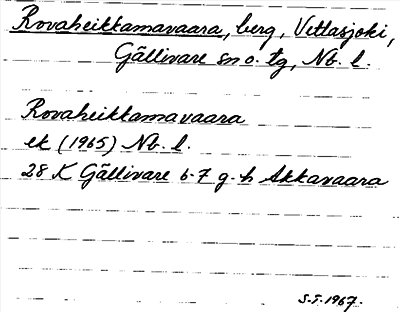 Rovaheikkamavaara, berg, Vettasjoki,
Gällivare sn o. tg, Nb. l.
Rovaheikkamavaara
ek (1965) Nb. l.
28 K Gällivare 6-7 g-h Akkavaara
S.T. 1967.